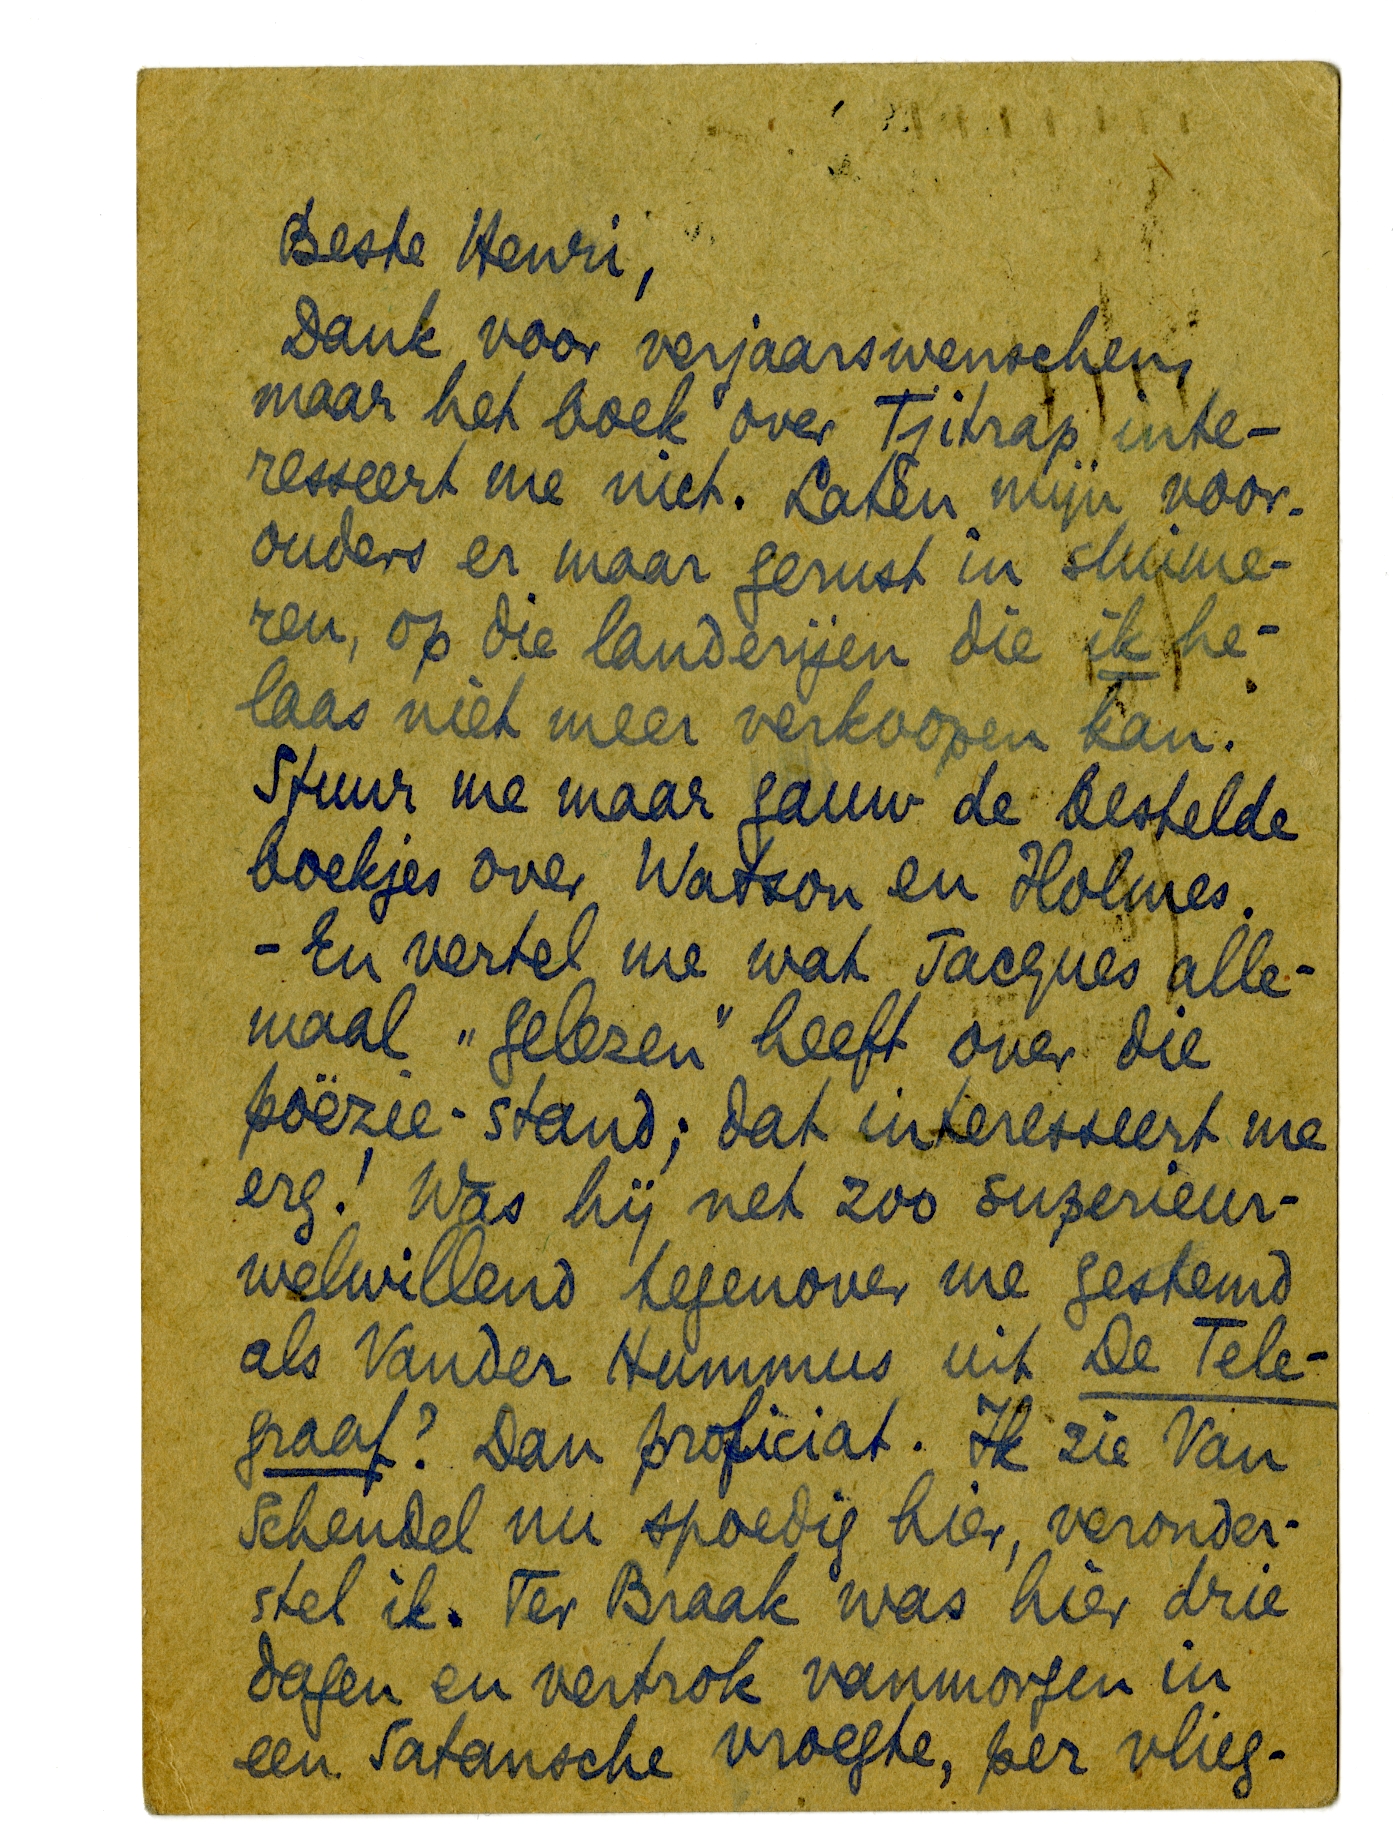 Beste Henri,
Dank voor verjaarswenschen,
maar het boek over Tjitrap inte-
resseert me niet. Laten mijn voor-
ouders er maar gerust in sluime-
ren, op die landerijen die ik he-
laas niet meer verkoopen kan.
Stuur me maar gauw de bestelde
boekjes over Watson en Holmes.
- En vertel me wat Jacques alle-
maal „gelezen" heeft over die
poëzie-stand; dat interesseert me
erg! Was hij net zoo superieur-
welwillend tegenover me gestemd
als Vander Hummus uit De Tele-
graaf? Dan proficiat. Ik zie Van
Schendel nu spoedig hier, veronder-
stel ik. Ter Braak was hier drie
dagen en vertrok vanmorgen in
een Satansche vroegte, per vlieg-